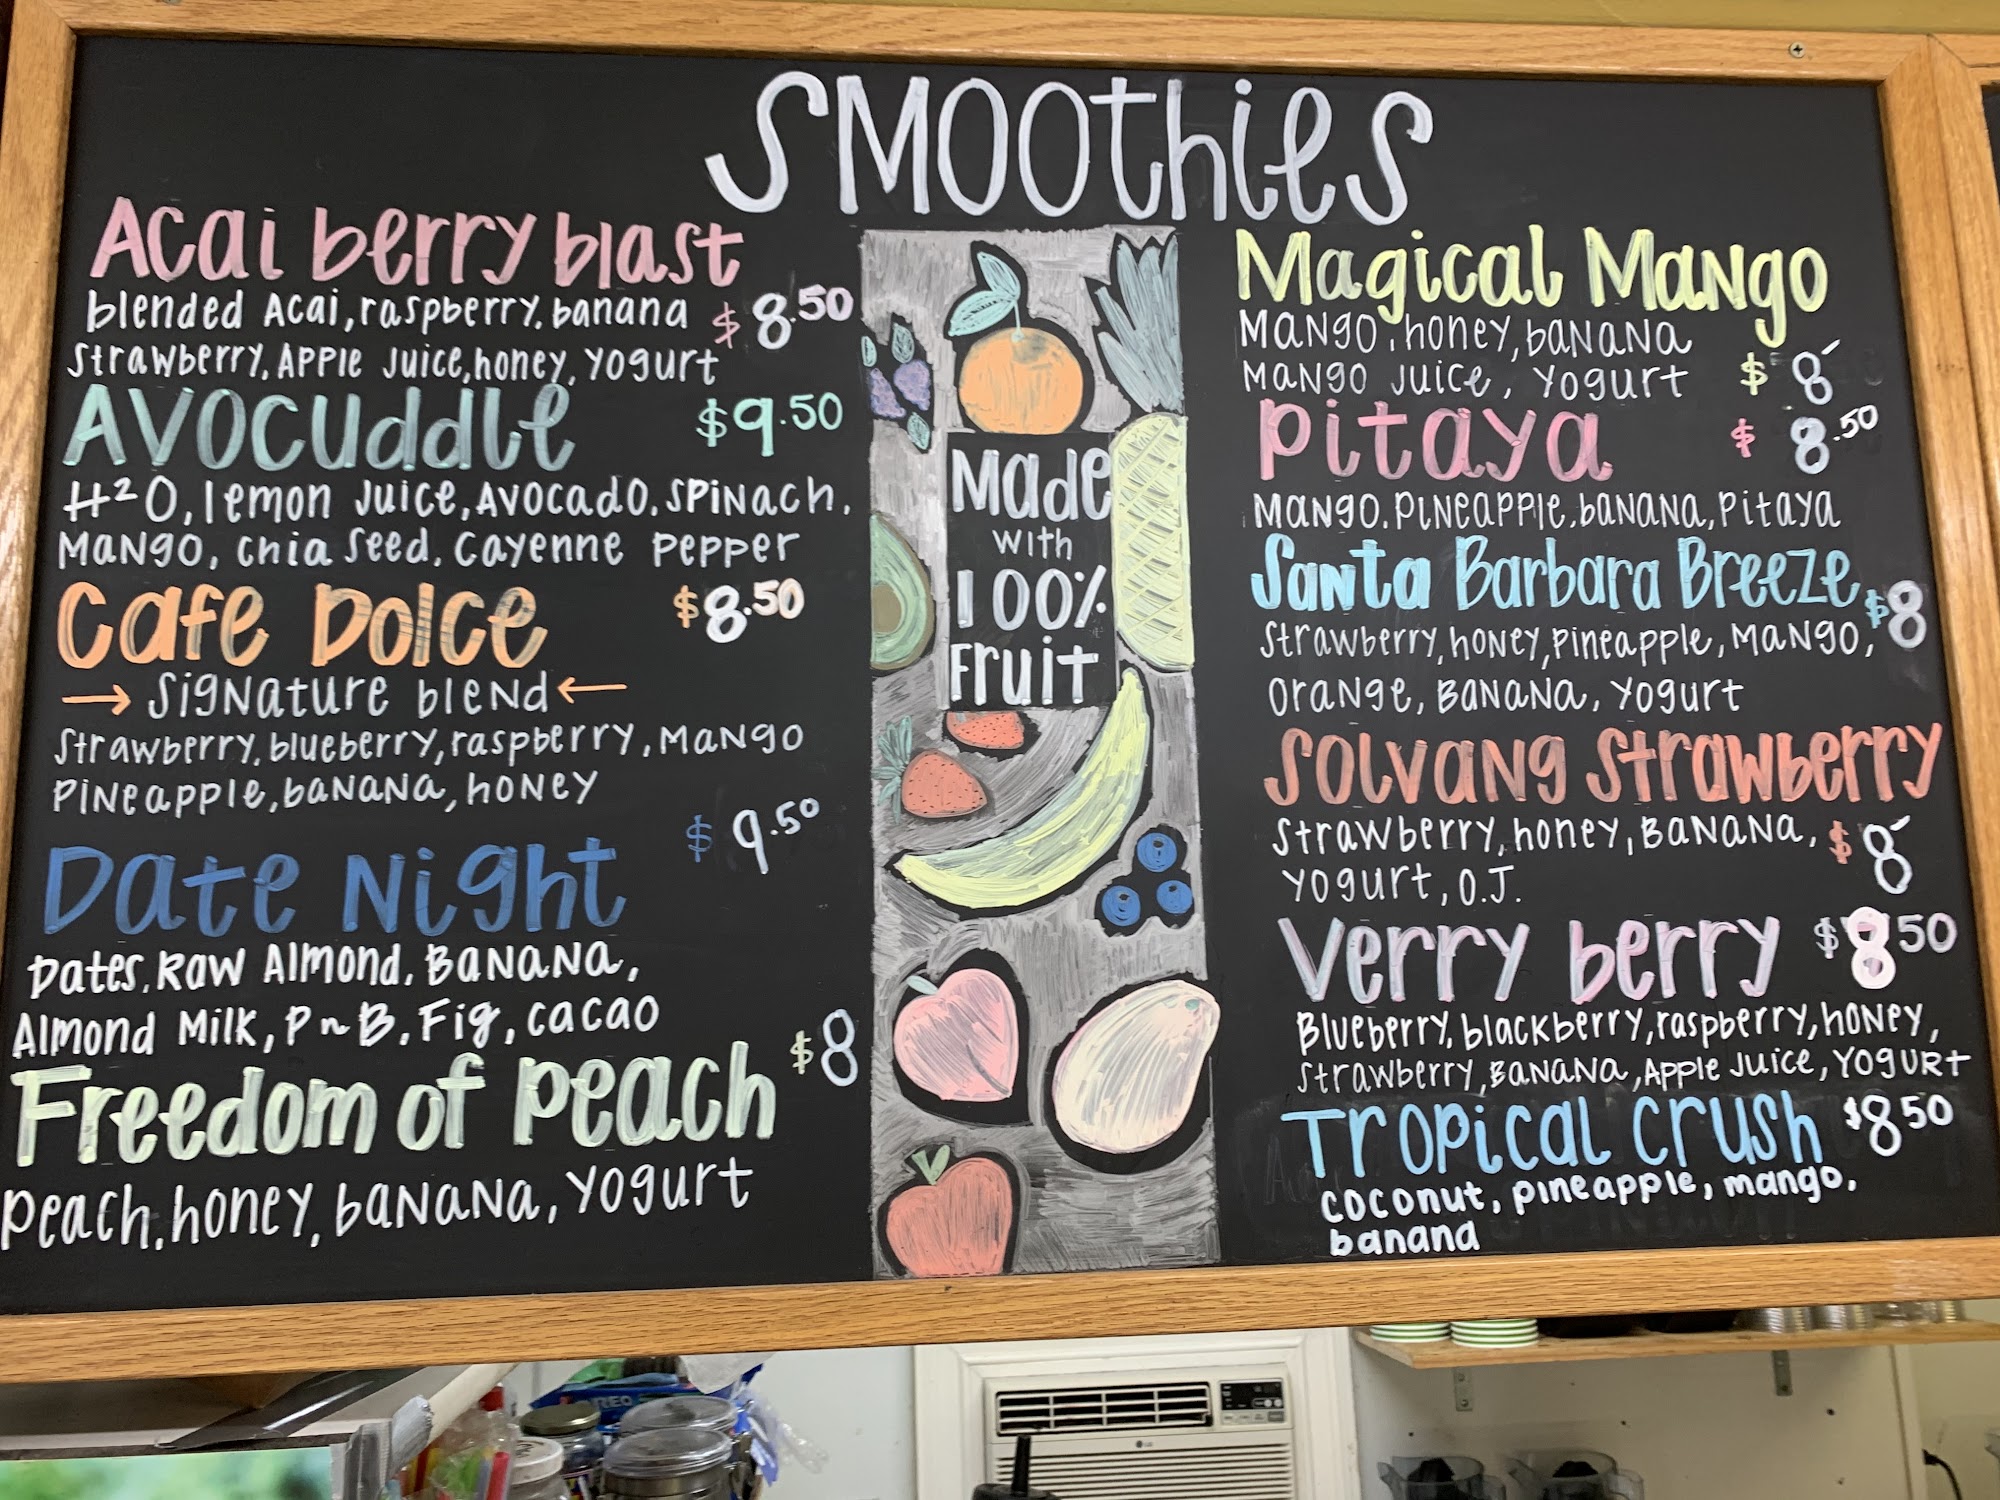 Smoothies
Acai berry blast
blended Acai, raspberry, banana $8.50
Strawberry, Apple Juice, honey, Yogurt
Avocuddle $9.50
H²O, lemon Juice, Avocado, Spinach,
Mango, Chia Seed, Cayenne Pepper
Cafe Dolce $8.50
→ Signature blend ←
Strawberry, blueberry, raspberry, Mango
Pineapple, banana, honey
Date Night $9.50
Dates, Raw Almond, Banana,
Almond Milk, P n B, Fig, cacao
Freedom of Peach $8
Peach, honey, banana, Yogurt
Made
with
100%
Fruit
Magical Mango
Mango, honey, banana
Mango Juice, Yogurt $8
Pitaya $8.50
Mango, Pineapple, banana, Pitaya
Santa Barbara Breeze $8
Strawberry, honey, Pineapple, Mango,
Orange, Banana, Yogurt
Solvang Strawberry
Strawberry, honey, Banana, $8
Yogurt, O.J.
Verry berry $8.50
Blueberry, blackberry, raspberry, honey,
Strawberry, Banana, Apple Juice, Yogurt
Tropical Crush $8.50
coconut, pineapple, mango,
banana
LG